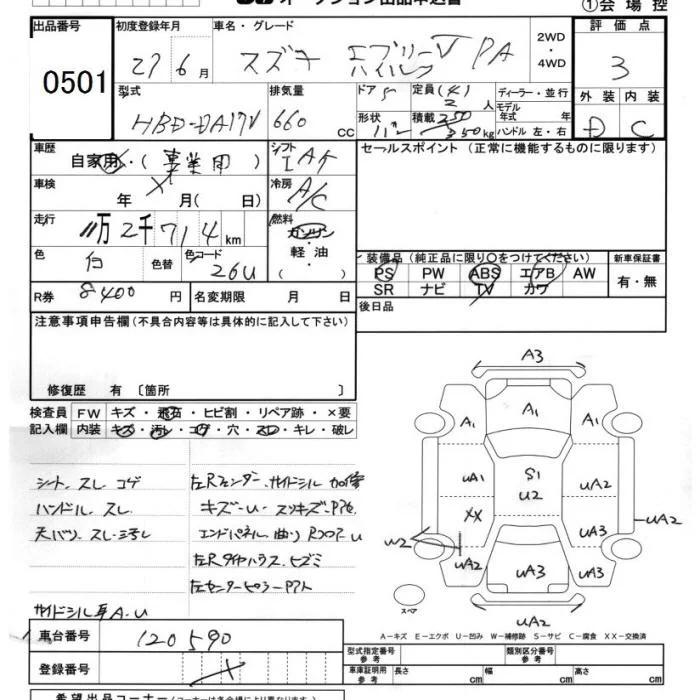 オークション出品申込書
①会場控
出品番号
0501
初度登録年月
27 6月
車名・グレード
スズキ エブリーV ハイルーフ PA
2WD
・
4WD
評価点
3
型式
HBD-DA17V
排気量
660 cc
ドア 5
形状 バン
定員 (4) 2人
積載 250 350kg
ディーラー・並行
モデル
年式 年
ハンドル 左・右
外装 内装
D C
車歴
自家用・(事業用)
シフト
IAT
セールスポイント (正常に機能するものに限ります)
車検
年 月( 日)
冷房
A/C
走行
11万2千714km
燃料
ガソリン
・
軽油
( )
色
白
色替
色コード
26U
装備品 (純正品に限り○をつけてください)
PS PW ABS エアB AW
SR ナビ TV カワ
新車保証書
有・無
R券
8400円
名変期限 月 日
後日品
注意事項申告欄(不具合内容等は具体的に記入して下さい)
修復歴 有 〔箇所 〕
検査員
記入欄
FW キズ・飛石・ヒビ割・リペア跡・×要
内装 キズ・汚レ・コゲ・穴・スレ・キレ・破レ
シート、スレ コゲ
ハンドル スレ
天バリ スレ・汚レ
サイドシル 耳A・U
左Rフェンダー、サイドシル 加修
キズ・U・スリキズ・Pアト
エンドパネル 曲り Rフロア U
左Rタイヤハウス ヒズミ
左センターピラー Pアト
A3
A1 A1 A1
UA1 S1 UA2
U2
XX UA3 UA2
W2 UA2 UA3 UA3
UA2
スペア
A-キズ E-エクボ U-凹み W-補修跡 S-サビ C-腐食 XX-交換済
車台番号
120590
登録番号
型式指定番号
参考
類別区分番号
参考
車庫証明用
参考
長さ cm 幅 cm 高さ cm
希望出品コーナー(コーナーは各会場により異なります)